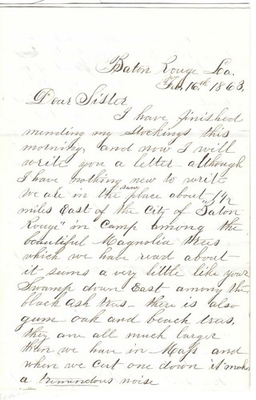 Baton Rouge La.
Feb 16th 1863.
Dear Sister
I have finished
mending my stockings this
morning and now I will
write you a letter although
I have nothing new to write
we are in the same place about 1 1/2
miles East of the City of "Baton
Rouge" in Camp among the
beautiful Magnolia trees
which we have read about
it seems a very little like your
Swamp down East among the
black ash trees – there is also
gum oak and beach trees,
they are all much larger
than we have in Mass and
when we cut one down it makes
a tremendous noise